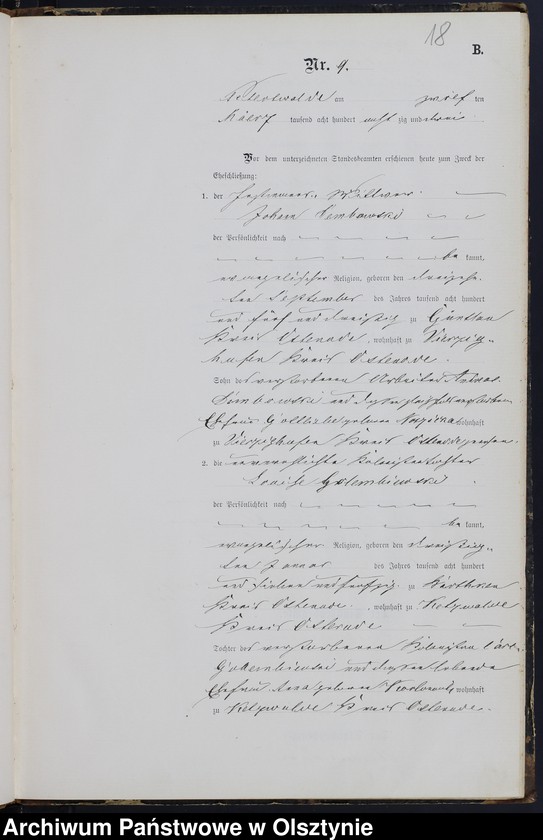 18
B.
Nr. 9.
am zwölf ten
März tausend acht hundert acht zig und drei
Vor dem unterzeichneten Standesbeamten erschienen heute zum Zweck der
Eheschließung:
1. der Wittwer
Johann Dembowski
der Persönlichkeit nach
be kannt,
evangelischer Religion, geboren den dreizehn-
ten September des Jahres tausend acht hundert
und fünf und dreißig zu
Kreis Osterode, wohnhaft zu Vierzig-
hufen Kreis Osterode.
Sohn des verstorbenen Arbeiter
Dimbowski und dessen verstorbenen
Ehefrau Gottliebe geborene wohnhaft
zu Vierzighufen Kreis Osterode gewesen.
2. die unverehelichte Kölmertochter
Louise Golembiewski
der Persönlichkeit nach
be kannt,
evangelischer Religion, geboren den dreißig-
ten Januar des Jahres tausend acht hundert
und sieben und fünfzig zu
Kreis Osterode, wohnhaft zu Ketzwalde
Kreis Osterode
Tochter des verstorbenen Carl
Golembiewski und dessen lebende
Ehefrau geborene wohnhaft
zu Ketzwalde Kreis Osterode.
Archiwum Państwowe w Olsztynie